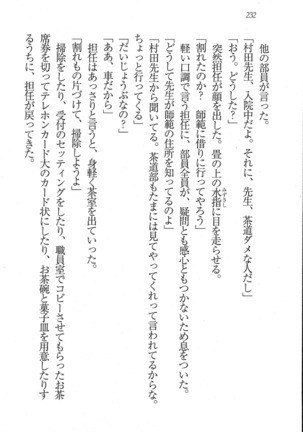 232
他の部員が言った。
「村田先生、入院中だよ。それに、先生、茶道ダメな人だし」
「おう。どうした?」
突然担任が顔を出した。畳の上の水指に目を走らせる。
「割れたのか? 師範に借りに行ってやろう」
軽い口調で言う担任に、部員全員が、疑問とも感心ともつかないため息をついた。
「どうして先生が師範の住所を知ってるのよ」
「村田先生から聞いてる。茶道部もたまには見てやってくれって言われてるからな。
ちょっと行ってくる」
「だいじょうぶなの?」
「ああ、車だから」
担任はあっさりと言うと、身軽く茶室を出ていった。
「割れもの片づけて、掃除しようよ」
掃除をしたり、受付のセッティングをしたり、職員室でコピーさせてもらったお茶
席券を切ってテレホンカード大のカード状にしたり、お茶碗と菓子皿を用意したりす
るうちに、担任が戻ってきた。